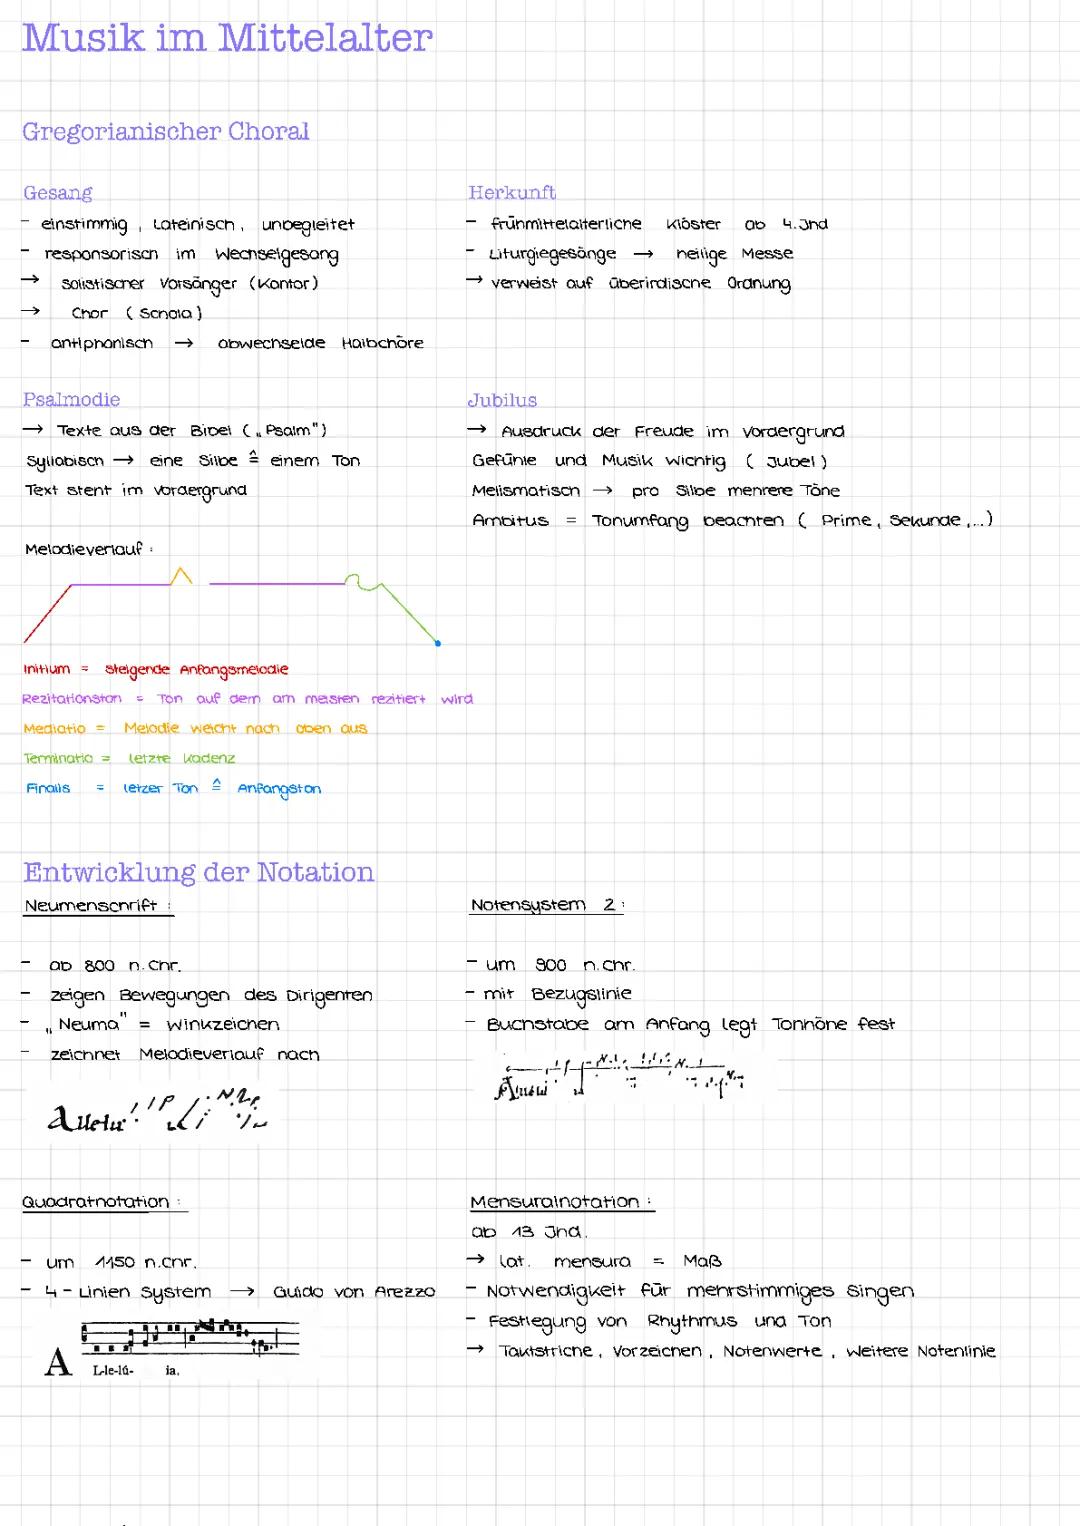 Musik im Mittelalter
Gregorianischer Choral
Gesang
- einstimmig, Lateinisch, unbegleitet
- responsorisch im Wechselgesang
→ solistischer Vorsänger (Kantor)
→ Chor (Schola)
- antiphonisch → abwechselde Halbchöre
Herkunft
- frühmittelalterliche Klöster ab 4.Jhd
- Liturgiegesänge → heilige Messe
→ verweist auf überirdische Ordnung
Psalmodie
→ Texte aus der Bibel („Psalm")
Syllabisch → eine Silbe ≙ einem Ton
Text steht im Vordergrund
Jubilus
→ Ausdruck der Freude im Vordergrund
Gefühle und Musik wichtig (Jubel)
Melismatisch → pro Silbe mehrere Töne
Ambitus = Tonumfang beachten (Prime, Sekunde,...)
Melodieverlauf:
Initium = steigende Anfangsmelodie
Rezitationston = Ton auf dem am meisten rezitiert wird
Mediatio = Melodie weicht nach oben aus
Terminatio = letzte Kadenz
Finalis = letzer Ton ≙ Anfangston
Entwicklung der Notation
Neumenschrift:
- ab 800 n.Chr.
- zeigen Bewegungen des Dirigenten
- „Neuma" = Winkzeichen
- zeichnet Melodieverlauf nach
Notensystem 2:
- um 900 n.Chr.
- mit Bezugslinie
- Buchstabe am Anfang legt Tonhöhe fest
Quadratnotation:
- um 1150 n.Chr.
- 4-Linien System → Guido von Arezzo
A L-le-lú- ia.
Mensuralnotation:
ab 13 Jhd.
→ lat. mensura = Maß
- Notwendigkeit für mehrstimmiges Singen
- Festlegung von Rhythmus und Ton
→ Taktstriche, Vorzeichen, Notenwerte, weitere Notenlinie